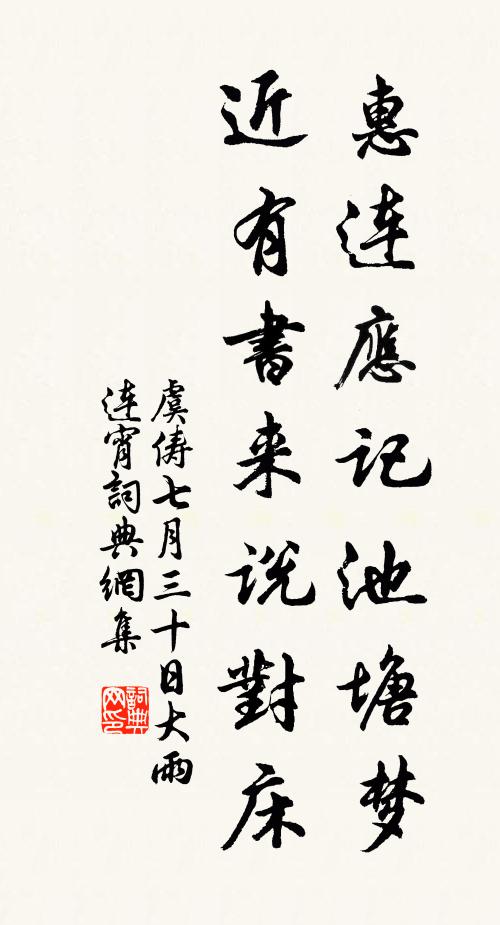 惠连應记池塘梦
近有書来说對床
虞俦七月三十日大雨
连宵詞典網集
詞典网印